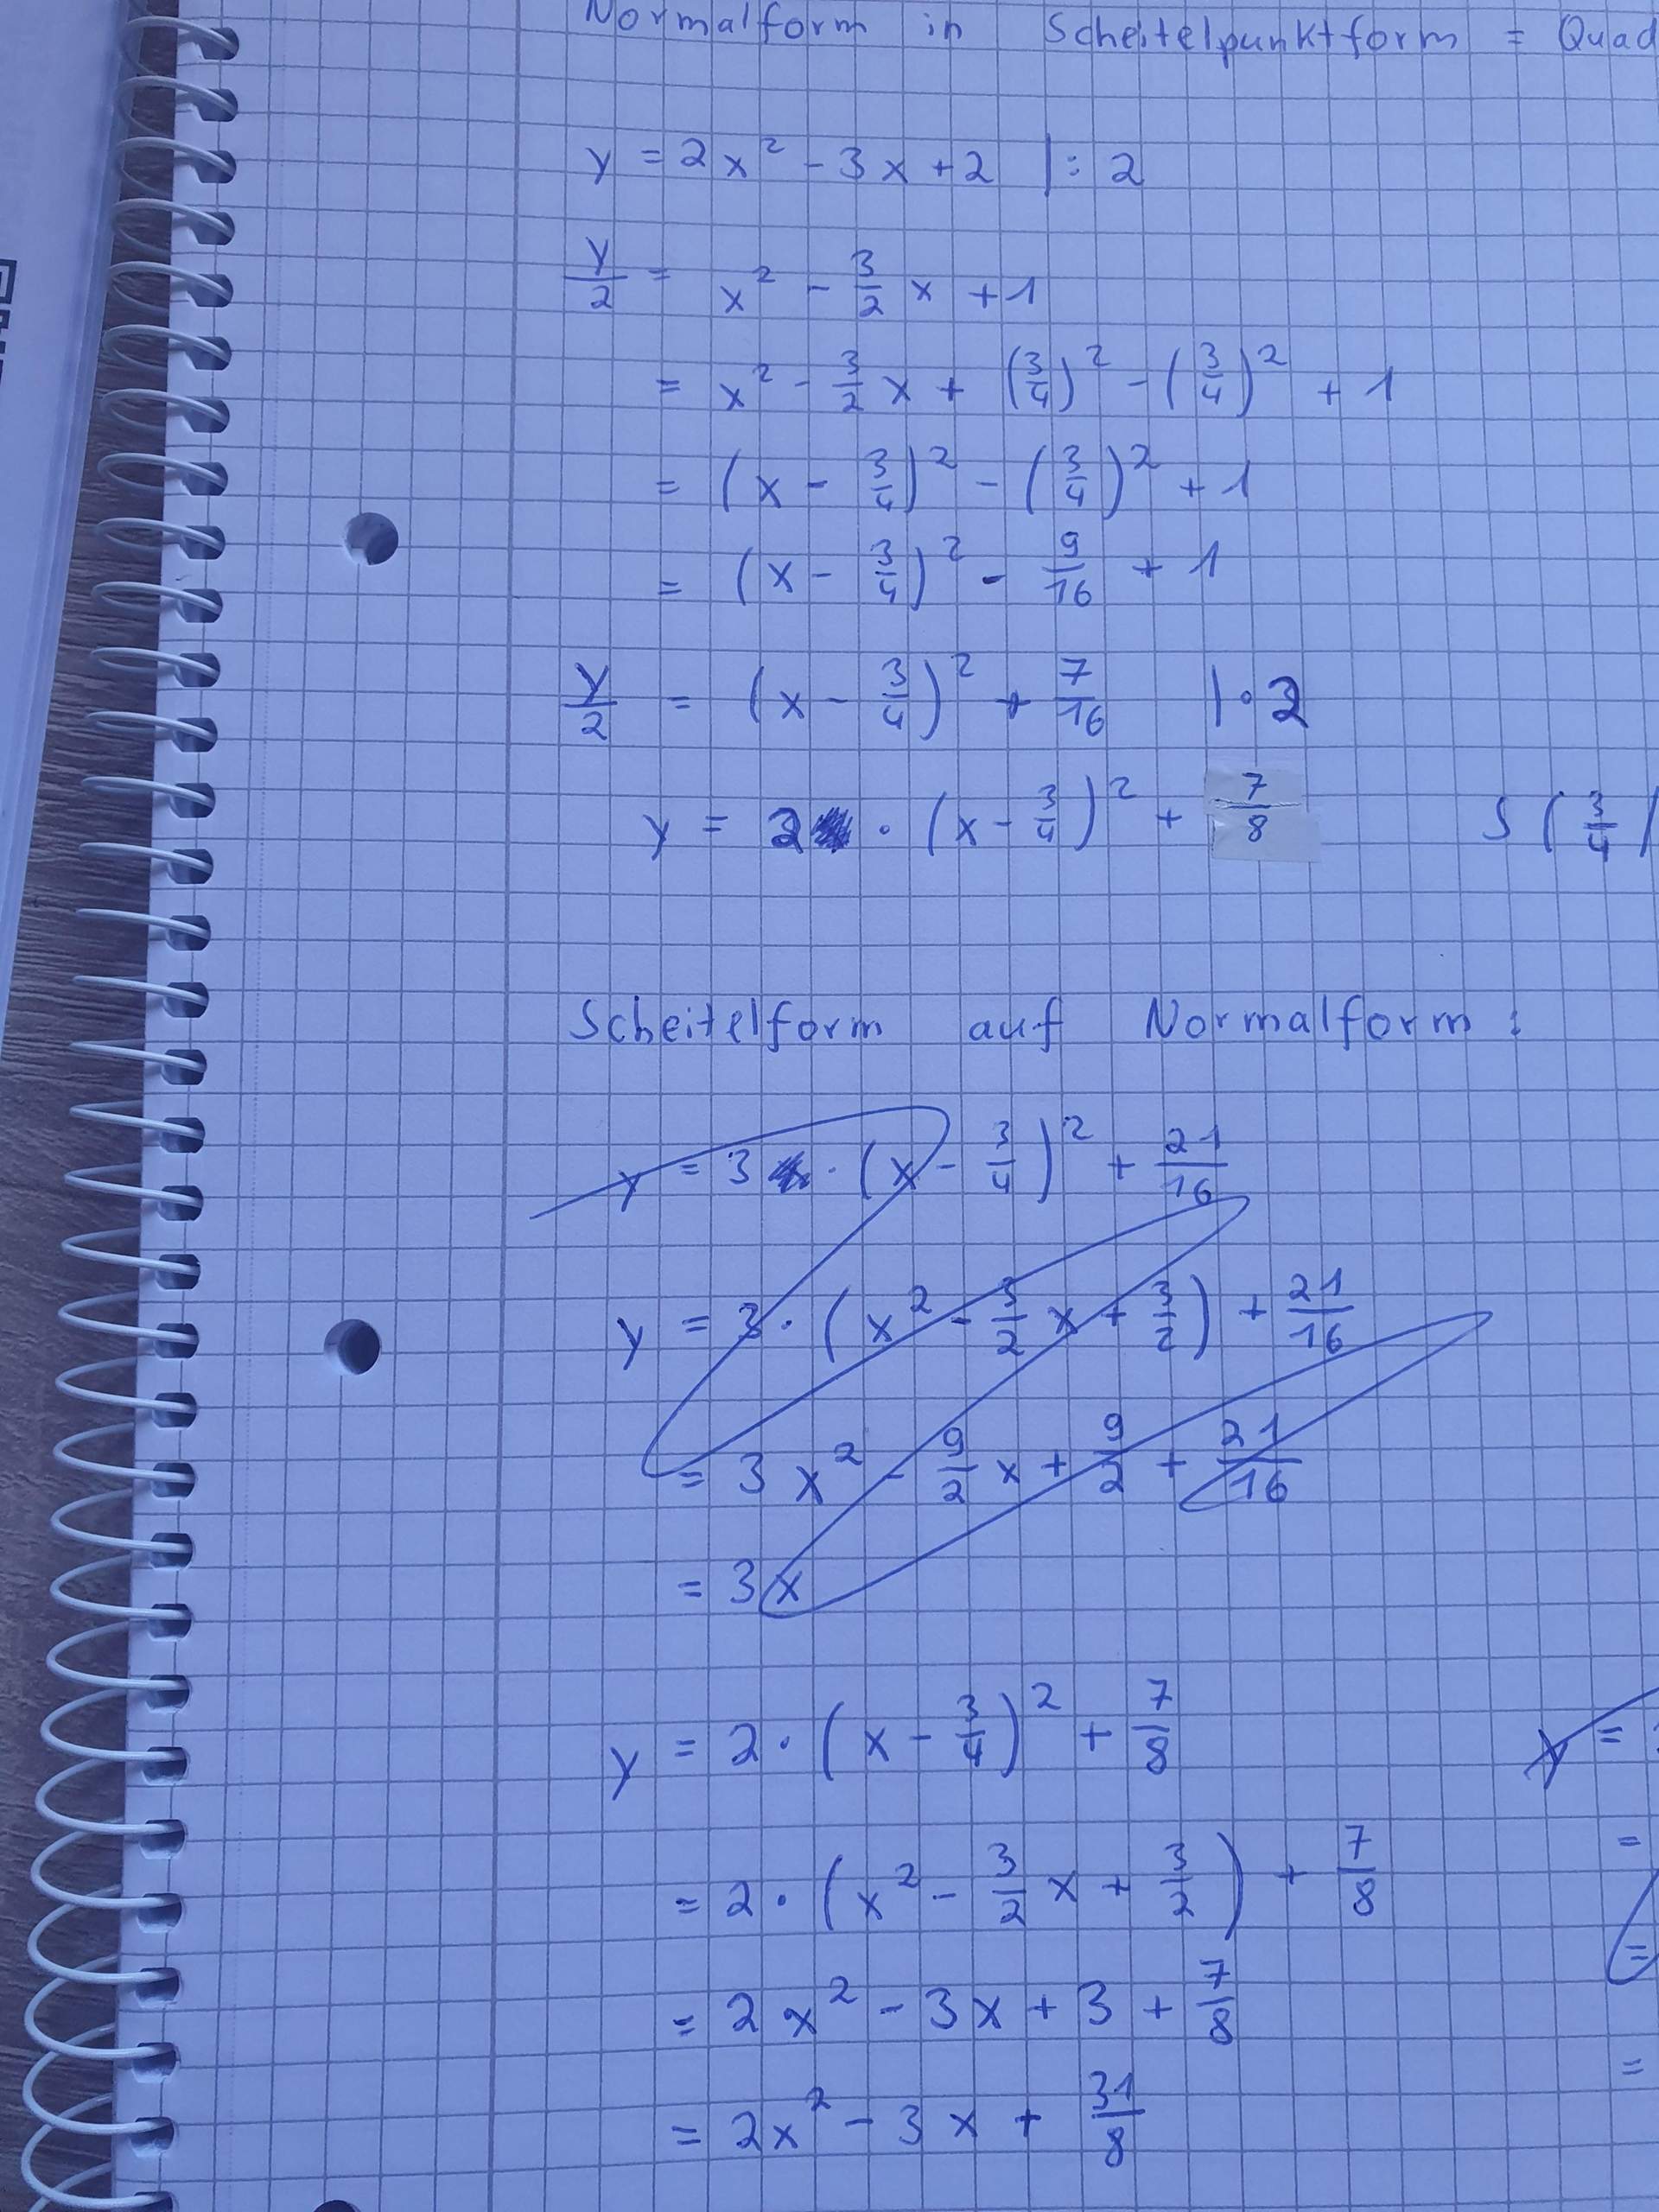 Normalform in Scheitelpunktform = Quad
y = 2x² - 3x + 2 | : 2
y/2 = x² - 3/2 x + 1
= x² - 3/2 x + (3/4)² - (3/4)² + 1
= (x - 3/4)² - (3/4)² + 1
= (x - 3/4)² - 9/16 + 1
y/2 = (x - 3/4)² + 7/16 | · 2
y = 2 · (x - 3/4)² + 7/8 S ( 3/4 |
Scheitelform auf Normalform :
y = 3 · (x - 3/4)² + 21/16
y = 3 · (x² - 3/2 x + 3/2) + 21/16
= 3x² - 9/2 x + 9/2 + 21/16
= 3x
y = 2 · (x - 3/4)² + 7/8 y =
= 2 · (x² - 3/2 x + 3/2) + 7/8 =
= 2x² - 3x + 3 + 7/8 =
= 2x² - 3x + 31/8 =